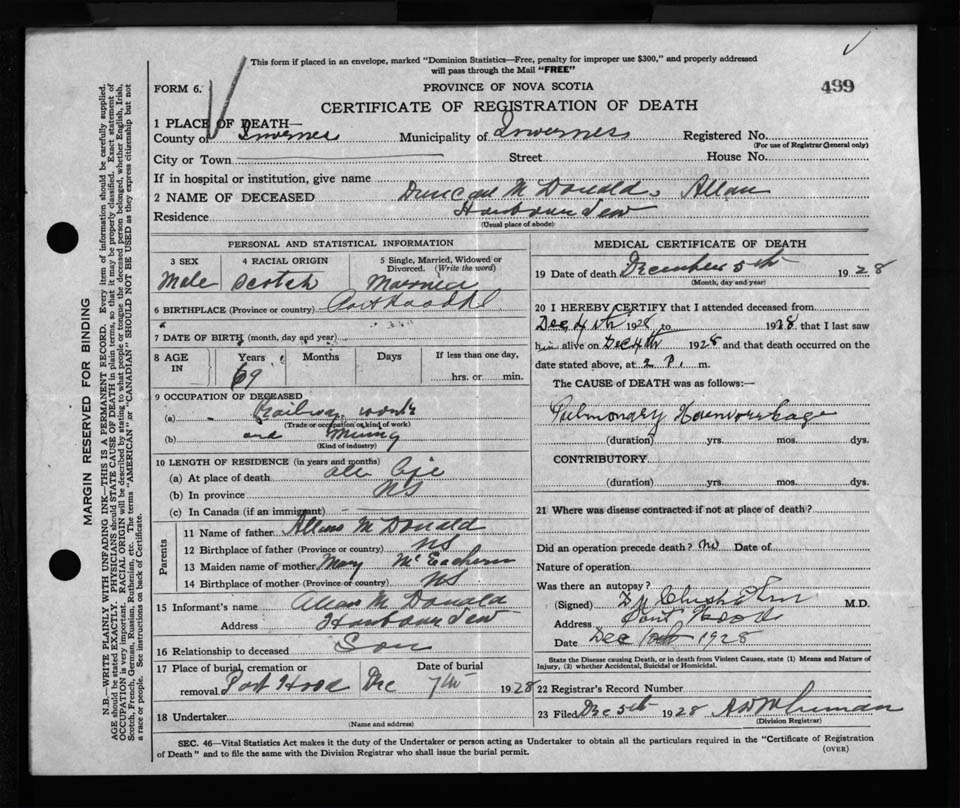 This form if placed in an envelope, marked "Dominion Statistics—Free, penalty for improper use $300," and properly addressed
will pass through the Mail "FREE"
FORM 6.
PROVINCE OF NOVA SCOTIA
499
CERTIFICATE OF REGISTRATION OF DEATH
1 PLACE OF DEATH—
County of Inverness Municipality of Inverness Registered No.
(For use of Registrar General only)
City or Town Street House No.
If in hospital or institution, give name
2 NAME OF DECEASED Duncan McDonald, Allan
Residence Harbour View
(Usual place of abode)
PERSONAL AND STATISTICAL INFORMATION
3 SEX 4 RACIAL ORIGIN 5 Single, Married, Widowed or Divorced. (Write the word)
Male Scotch Married
6 BIRTHPLACE (Province or country) Port Hood
7 DATE OF BIRTH (month, day and year)
8 AGE IN Years Months Days If less than one day,
69 hrs. or min.
9 OCCUPATION OF DECEASED
(a) Railway work
(Trade or occupation or kind of work)
(b) and Mining
(Kind of industry)
10 LENGTH OF RESIDENCE (in years and months)
(a) At place of death all life
(b) In province NS
(c) In Canada (if an immigrant)
Parents
11 Name of father Allan McDonald
12 Birthplace of father (Province or country) NS
13 Maiden name of mother Mary McEachern
14 Birthplace of mother (Province or country) NS
15 Informant's name Allan McDonald
Address Harbour View
16 Relationship to deceased Son
17 Place of burial, cremation or removal Port Hood Date of burial Dec 7th 1928
18 Undertaker
(Name and address)
MEDICAL CERTIFICATE OF DEATH
19 Date of death December 5th 1928
(Month, day and year)
20 I HEREBY CERTIFY that I attended deceased from
Dec 4th 1928 to 1928 that I last saw
him alive on Dec 4th 1928 and that death occurred on the
date stated above, at 2 P. m.
The CAUSE OF DEATH was as follows:—
Pulmonary Haemorrhage
(duration) yrs. mos. dys.
CONTRIBUTORY
(duration) yrs. mos. dys.
21 Where was disease contracted if not at place of death?
Did an operation precede death? no Date of
Nature of operation
Was there an autopsy?
(Signed) Chisholm M.D.
Address Port Hood
Date Dec 1928
State the Disease causing Death, or in death from Violent Causes, state (1) Means and Nature of
Injury, (2) whether Accidental, Suicidal or Homicidal.
22 Registrar's Record Number
23 Filed Dec 5th 1928
(Division Registrar)
SEC. 46—Vital Statistics Act makes it the duty of the Undertaker or person acting as Undertaker to obtain all the particulars required in the "Certificate of Registration
of Death" and to file the same with the Division Registrar who shall issue the burial permit.
(OVER)
MARGIN RESERVED FOR BINDING
N.B.—WRITE PLAINLY WITH UNFADING INK—THIS IS A PERMANENT RECORD. Every item of information should be carefully supplied.
AGE should be stated EXACTLY. PHYSICIANS should STATE CAUSE OF DEATH in plain terms, so that it may be properly classified. Exact statement of
OCCUPATION is very important. RACIAL ORIGIN will be described by stating to what people or tongue the deceased person belonged, whether English, Irish,
Scotch, French, German, Russian, Ruthenian, etc. The terms "AMERICAN" or "CANADIAN" SHOULD NOT BE USED as they express citizenship but not
a race or people. See instructions on back of Certificate.